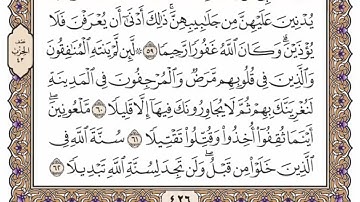 يُدْنِينَ عَلَيْهِنَّ مِن جَلَٰبِيبِهِنَّ ۚ ذَٰلِكَ أَدْنَىٰٓ أَن يُعْرَفْنَ فَلَا
يُؤْذَيْنَ ۗ وَكَانَ ٱللَّهُ غَفُورًا رَّحِيمًا ٥٩ ۞ لَّئِن لَّمْ يَنتَهِ ٱلْمُنَٰفِقُونَ
وَٱلَّذِينَ فِى قُلُوبِهِم مَّرَضٌ وَٱلْمُرْجِفُونَ فِى ٱلْمَدِينَةِ
لَنُغْرِيَنَّكَ بِهِمْ ثُمَّ لَا يُجَاوِرُونَكَ فِيهَآ إِلَّا قَلِيلًا ٦٠ مَّلْعُونِينَ ۖ
أَيْنَمَا ثُقِفُوٓا۟ أُخِذُوا۟ وَقُتِّلُوا۟ تَقْتِيلًا ٦١ سُنَّةَ ٱللَّهِ فِى
ٱلَّذِينَ خَلَوْا۟ مِن قَبْلُ ۖ وَلَن تَجِدَ لِسُنَّةِ ٱللَّهِ تَبْدِيلًا ٦٢
٤٢٦